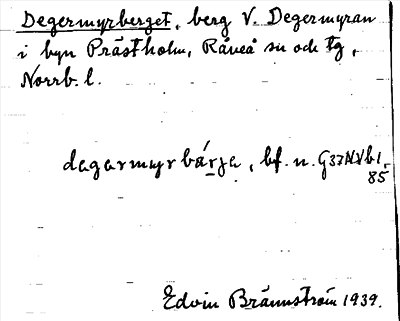 Degermyrberget, berg V. Degermyran
i byn Prästholm, Råneå sn och tg,
Norrb. l.
dagarmyrbárja, bf. n. G37NVb1,
85
Edvin Brännström 1939.